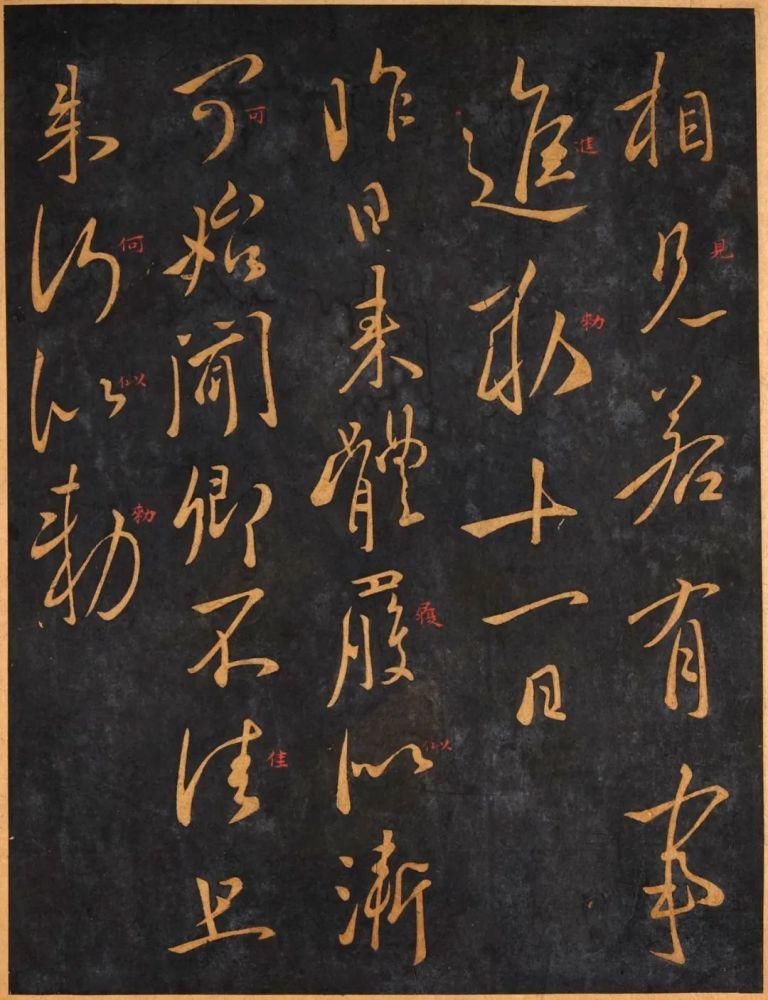 相見若有事
進勅十一日
昨日來體履似漸
可始聞卿不佳且
來何似勅
見
進
勅
履
似
可
佳
何
似
勅